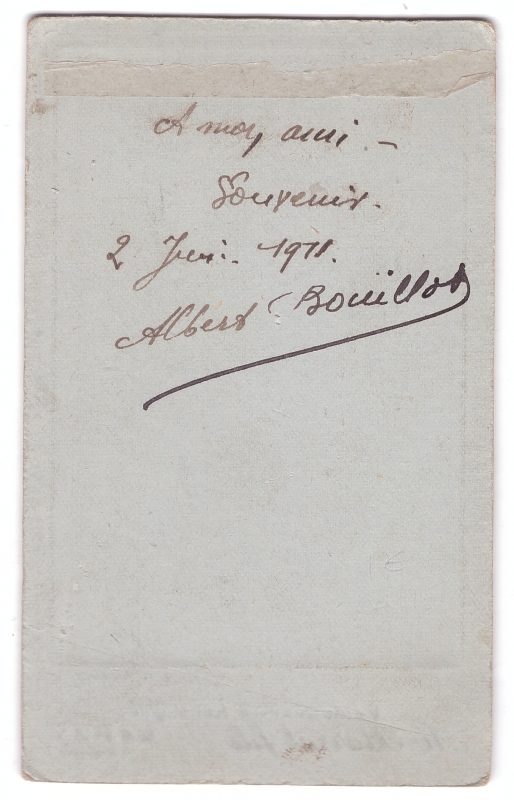 A moy ami. -
Souvenir.
2 Juin. 1911.
Albert Bouillot